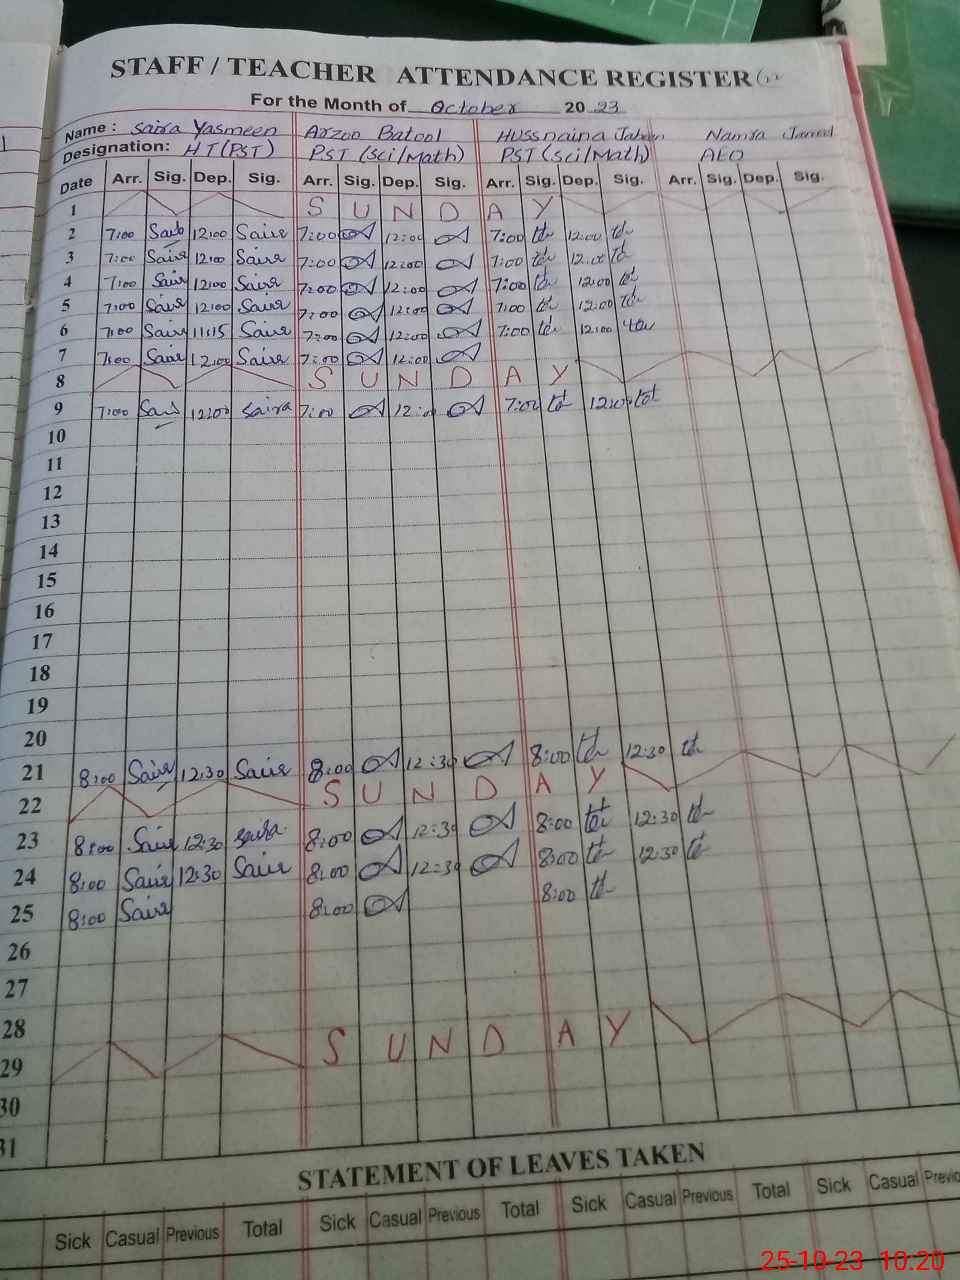 STAFF / TEACHER ATTENDANCE REGISTER
For the Month of October 2023
Name : Saira Yasmeen Arzoo Batool Hussnaina Jabeen Namra Javed
Designation: HT (PST) PST (Sci/Math) PST (Sci/Math) AEO
Date Arr. Sig. Dep. Sig. Arr. Sig. Dep. Sig. Arr. Sig. Dep. Sig. Arr. Sig. Dep. Sig.
1 SUNDAY
2 7:00 Saira 12:00 Saira 7:00 12:00 7:00 12:00
3 7:00 Saira 12:00 Saira 7:00 12:00 7:00 12:00
4 7:00 Saira 12:00 Saira 7:00 12:00 7:00 12:00
5 7:00 Saira 12:00 Saira 7:00 12:00 7:00 12:00
6 7:00 Saira 11:15 Saira 7:00 12:00 7:00 12:00
7 7:00 Saira 12:00 Saira 7:00 12:00
8 SUNDAY
9 7:00 12:00 Saira 7:00 12:00 7:00 12:00
10
11
12
13
14
15
16
17
18
19
20
21 8:00 Saira 12:30 Saira 8:00 12:30 8:00 12:30
22 SUNDAY
23 8:00 Saira 12:30 Saira 8:00 12:30 8:00 12:30
24 8:00 Saira 12:30 Saira 8:00 12:30 8:00 12:30
25 8:00 Saira 8:00 8:00
26
27
28
29 SUNDAY
30
31
STATEMENT OF LEAVES TAKEN
Sick Casual Previous Total Sick Casual Previous Total Sick Casual Previous Total Sick Casual Previo
25-10-23 10:20